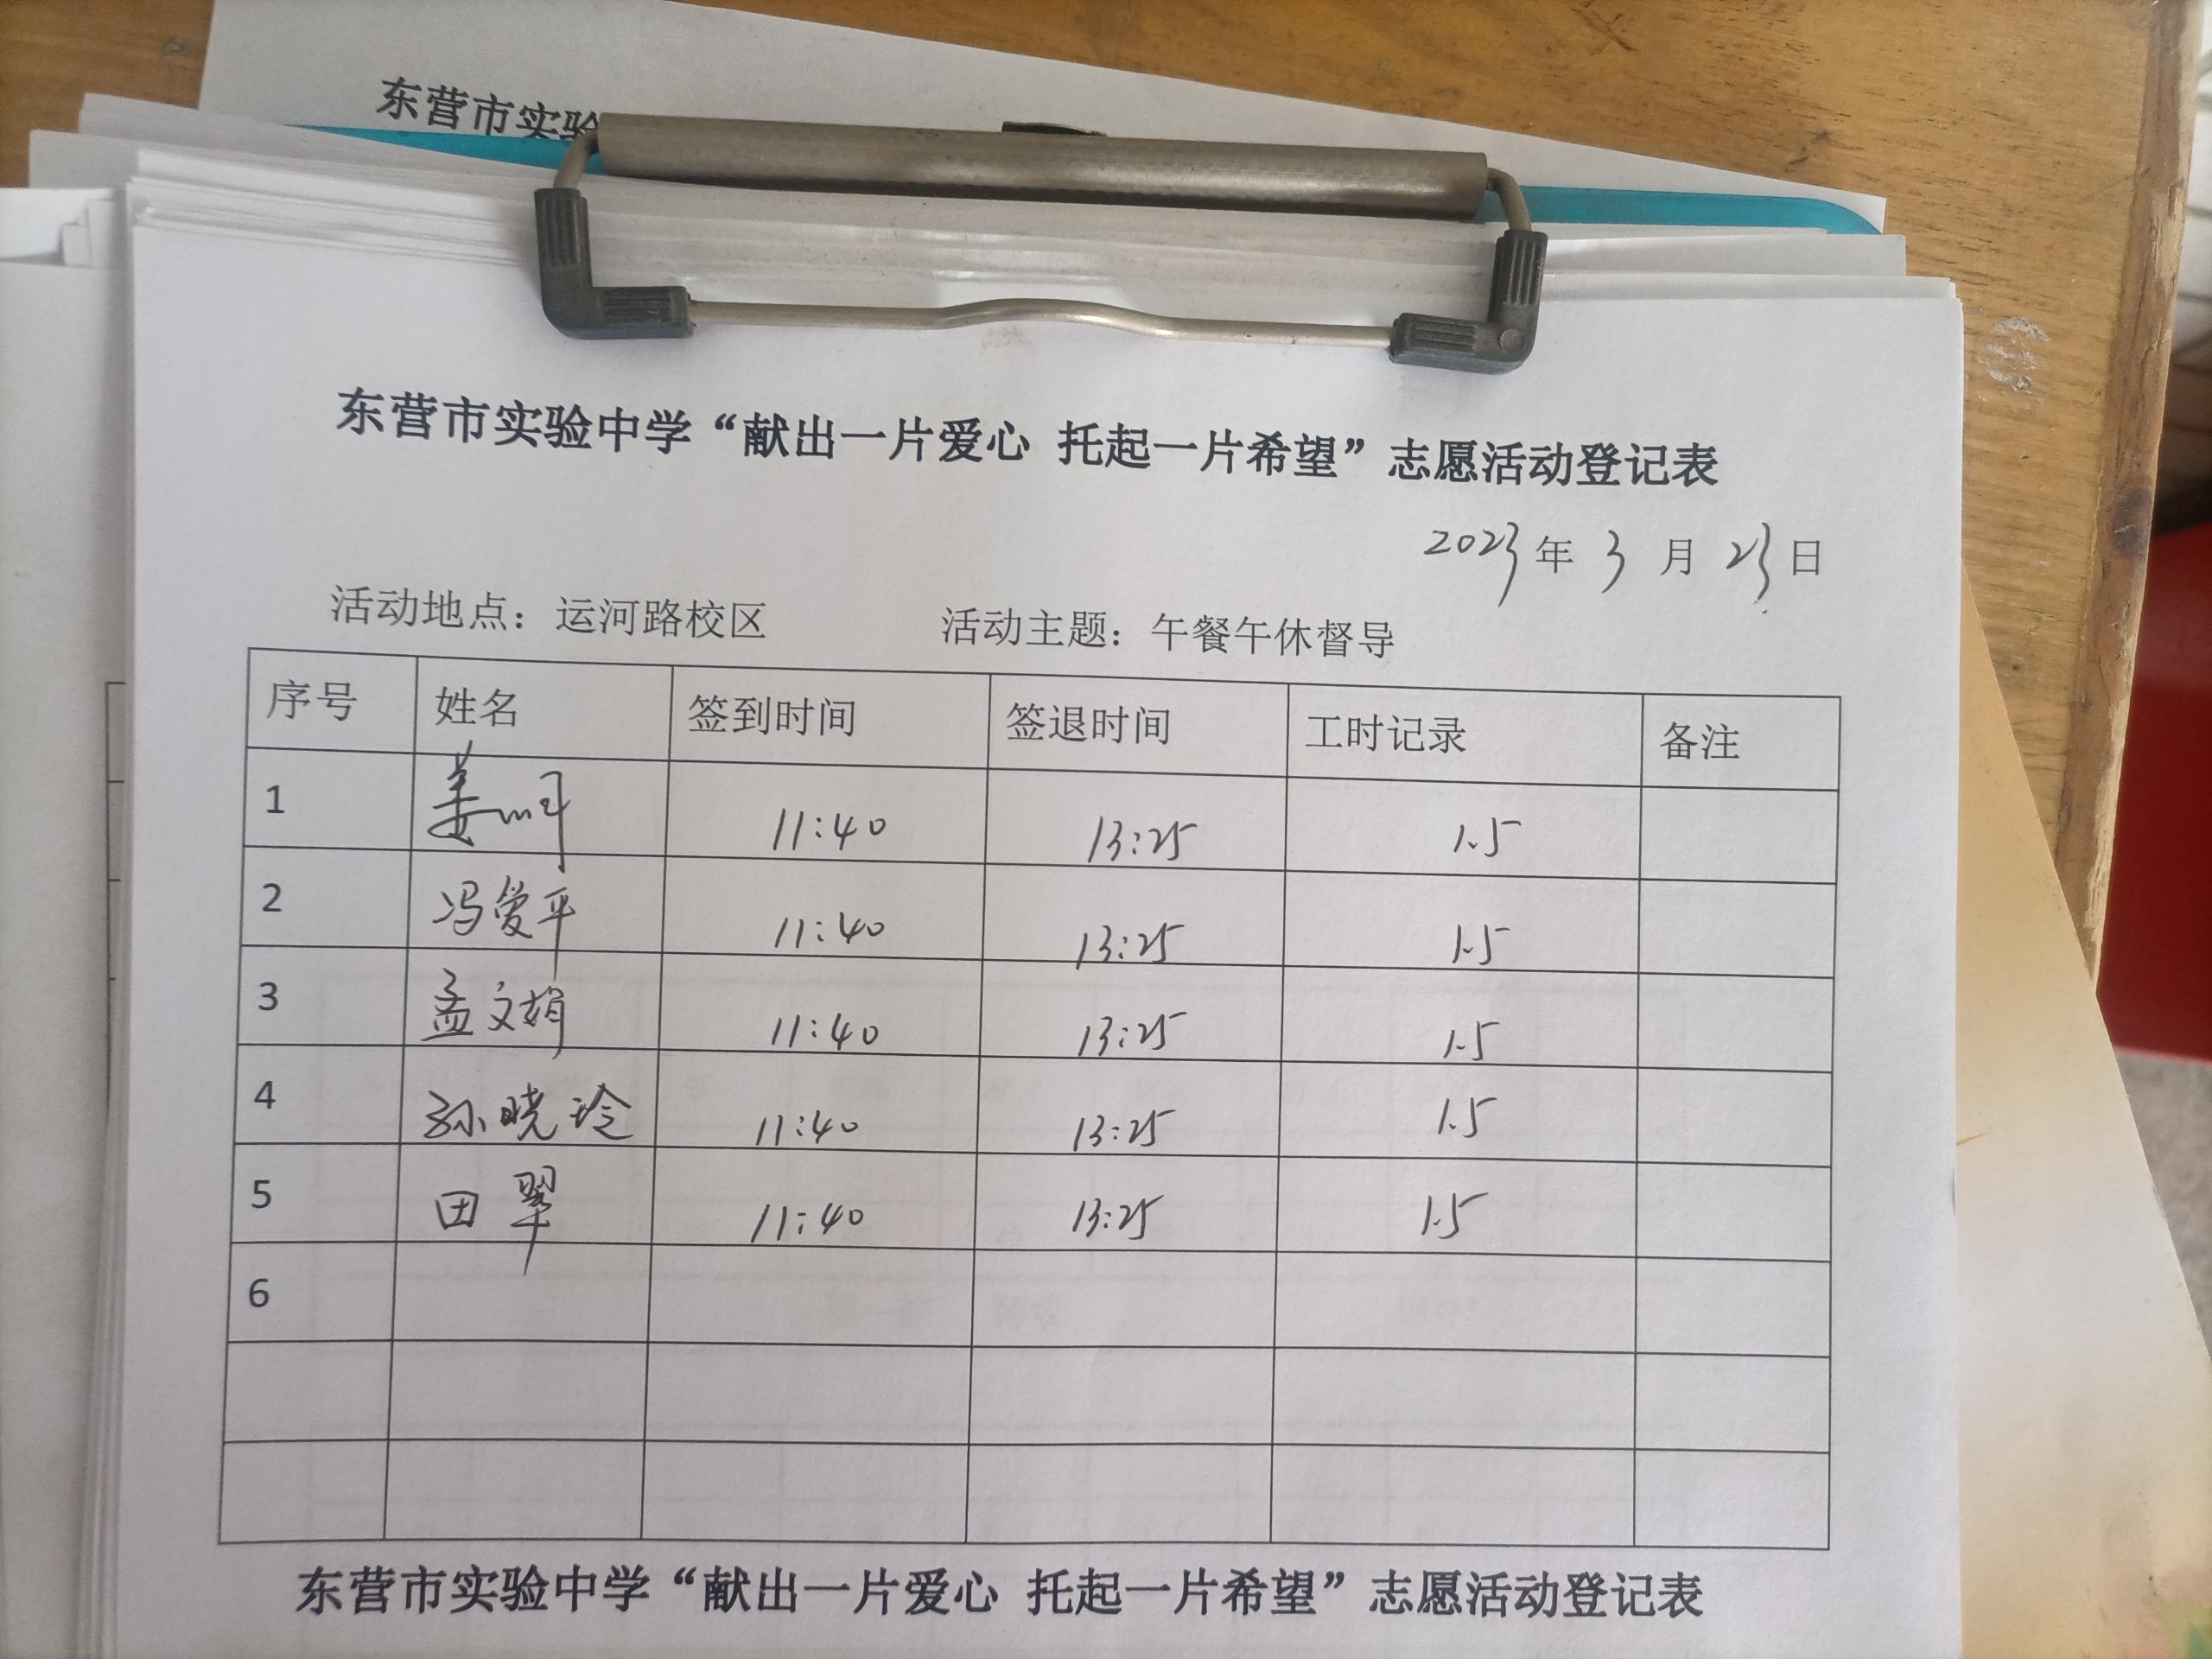 东营市实验
东营市实验中学“献出一片爱心 托起一片希望”志愿活动登记表
2023年 3 月 23 日
活动地点：运河路校区 活动主题：午餐午休督导
序号 姓名 签到时间 签退时间 工时记录 备注
1 姜 11:40 13:25 1.5
2 冯爱平 11:40 13:25 1.5
3 孟文娟 11:40 13:25 1.5
4 孙晓玲 11:40 13:25 1.5
5 田翠 11:40 13:25 1.5
6
东营市实验中学“献出一片爱心 托起一片希望”志愿活动登记表